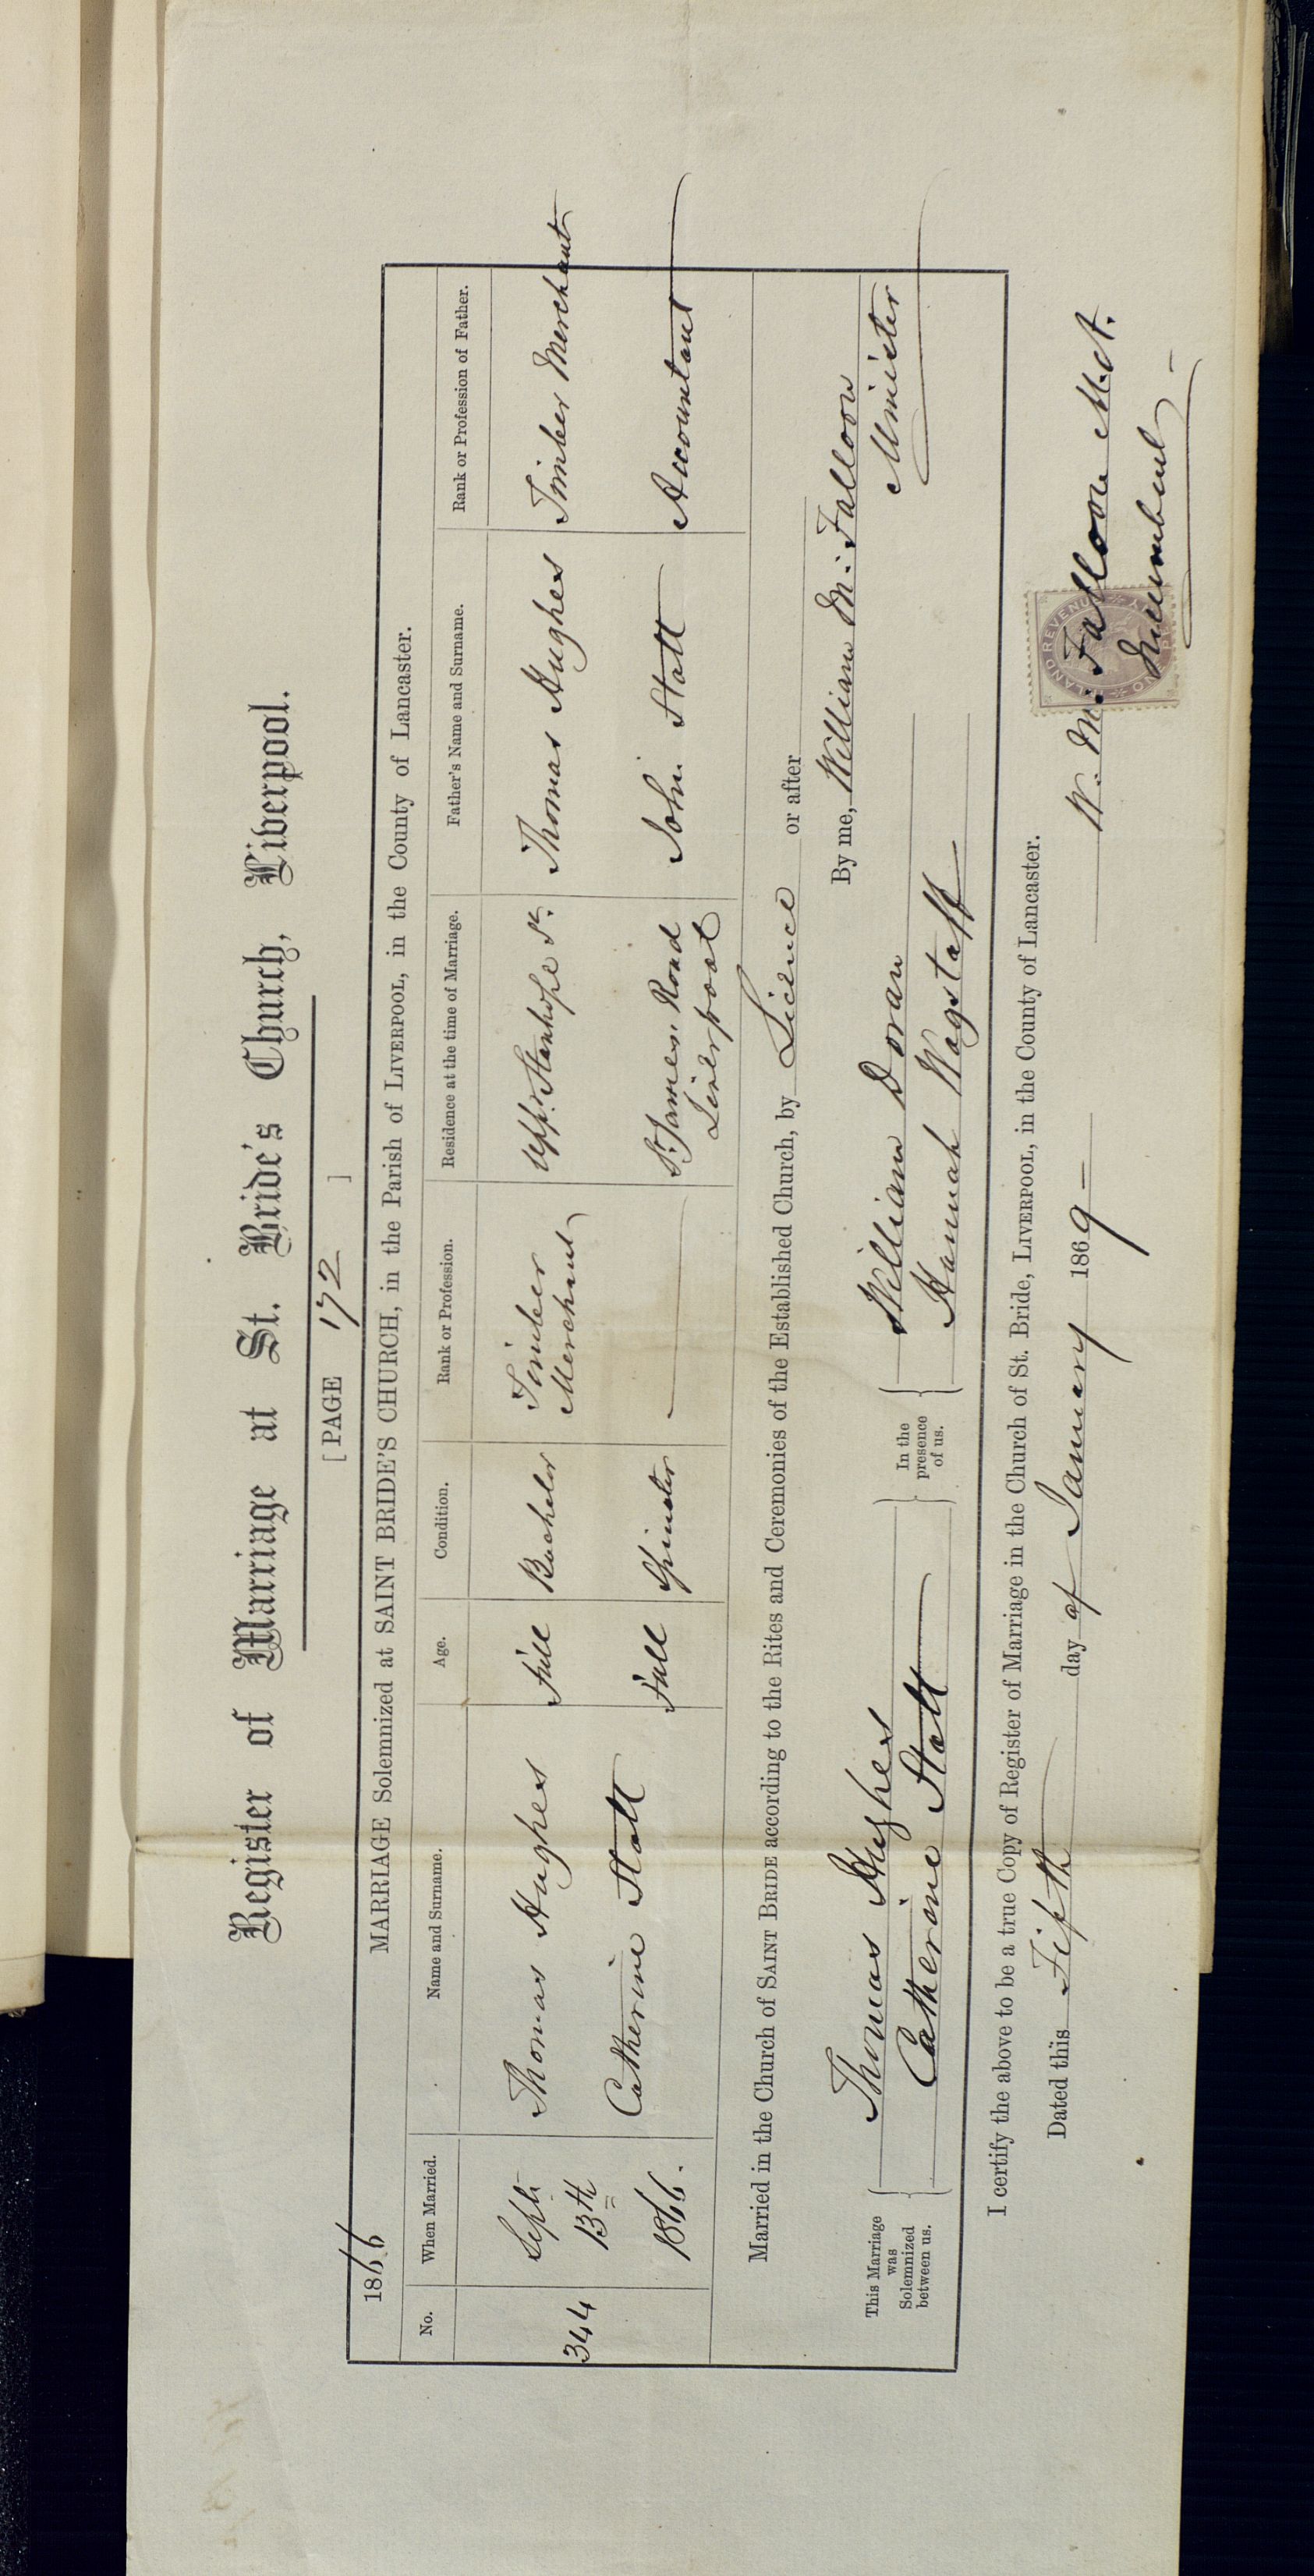 Register of Marriage at St. Bride's Church, Liverpool.
[PAGE 172 ]
1866 MARRIAGE Solemnized at SAINT BRIDE'S CHURCH, in the Parish of LIVERPOOL, in the County of Lancaster.
No. When Married. Name and Surname. Age. Condition. Rank or Profession. Residence at the time of Marriage. Father's Name and Surname. Rank or Profession of Father.
344 Sept. 13th 1866. Thomas Hughes Full Bachelor Timber Merchant Upp. Stanhope St. Thomas Hughes Timber Merchant
Catherine Stott Full Spinster St. James. Road Liverpool John Stott Accountant
Married in the Church of SAINT BRIDE according to the Rites and Ceremonies of the Established Church, by Licence or after
By me, William M. Falloon
Minister
This Marriage was Solemnized between us.
Thomas Hughes
Catherine Stott
In the presence of us.
William Doran
Hannah Wagstaff
I certify the above to be a true Copy of Register of Marriage in the Church of St. Bride, LIVERPOOL, in the County of Lancaster.
Dated this Fifth day of January 1869
W. M. Falloon M.A.
Incumbent